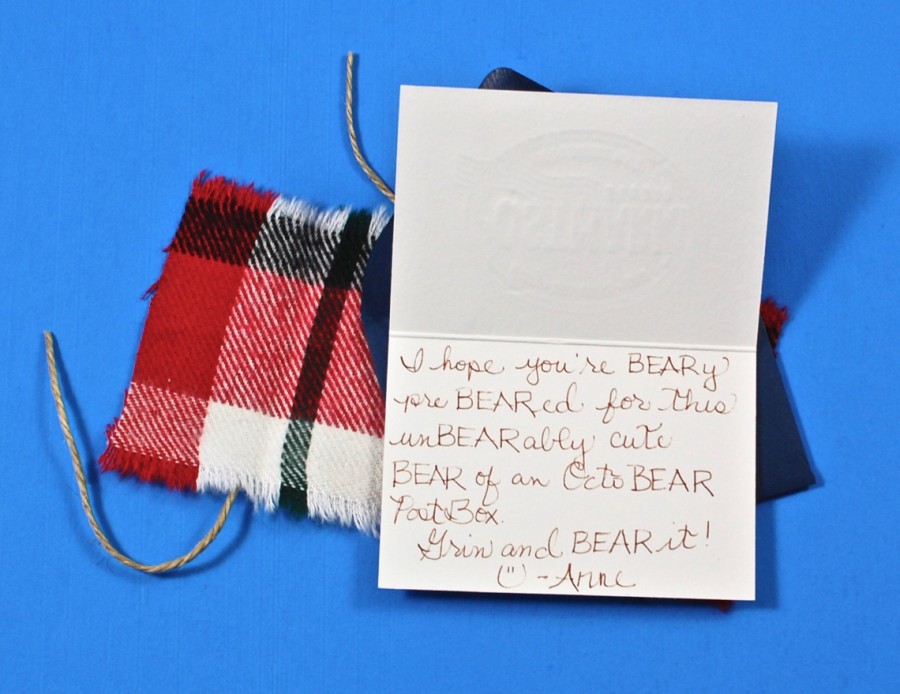 I hope you're BEARy
preBEARed for this
unBEARably cute
BEAR of an OctoBEAR
PostBox.
Grin and BEAR it!
-Anne